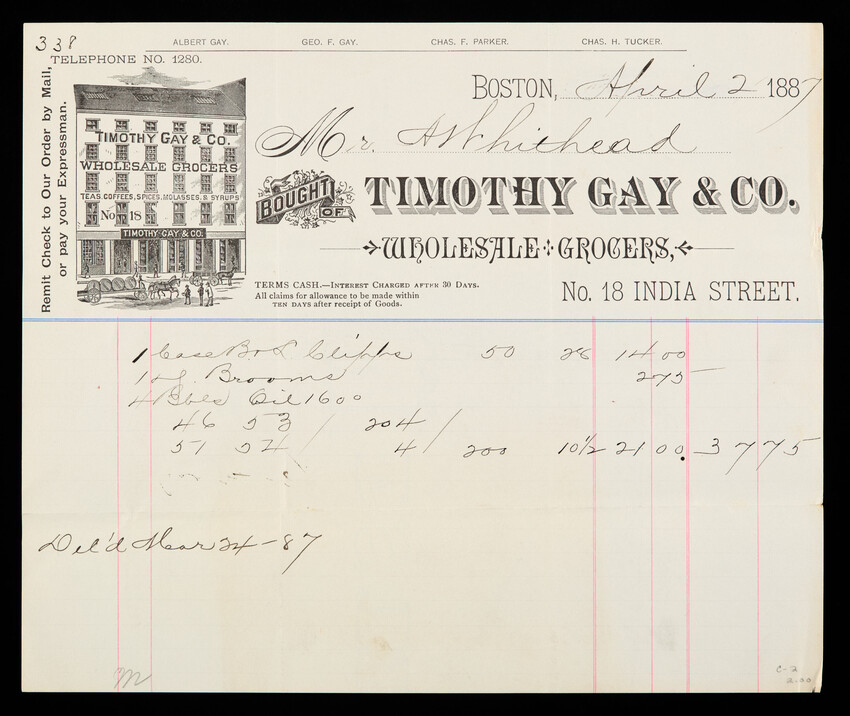 338
ALBERT GAY. GEO. F. GAY. CHAS. F. PARKER. CHAS. H. TUCKER.
TELEPHONE NO. 1280.
Remit Check to Our Order by Mail,
or pay your Expressman.
BOSTON, April 2 1887
Mr. A Whithead
TIMOTHY GAY & CO.
WHOLESALE GROCERS
TEAS, COFFEES, SPICES, MOLASSES, & SYRUPS
No 18
TIMOTHY GAY & CO.
BOUGHT OF TIMOTHY GAY & CO.
WHOLESALE GROCERS,
TERMS CASH.—INTEREST CHARGED AFTER 30 DAYS.
All claims for allowance to be made within
TEN DAYS after receipt of Goods.
No. 18 INDIA STREET.
1 Case 50 28 14 00
1 Brooms 2 75
4 Bbls Oil 1600
46 53 / 204 /
51 54 4 200 10 1/2 21 00. 37 75
Del'd Mar 24-87
M
C-2
2.00